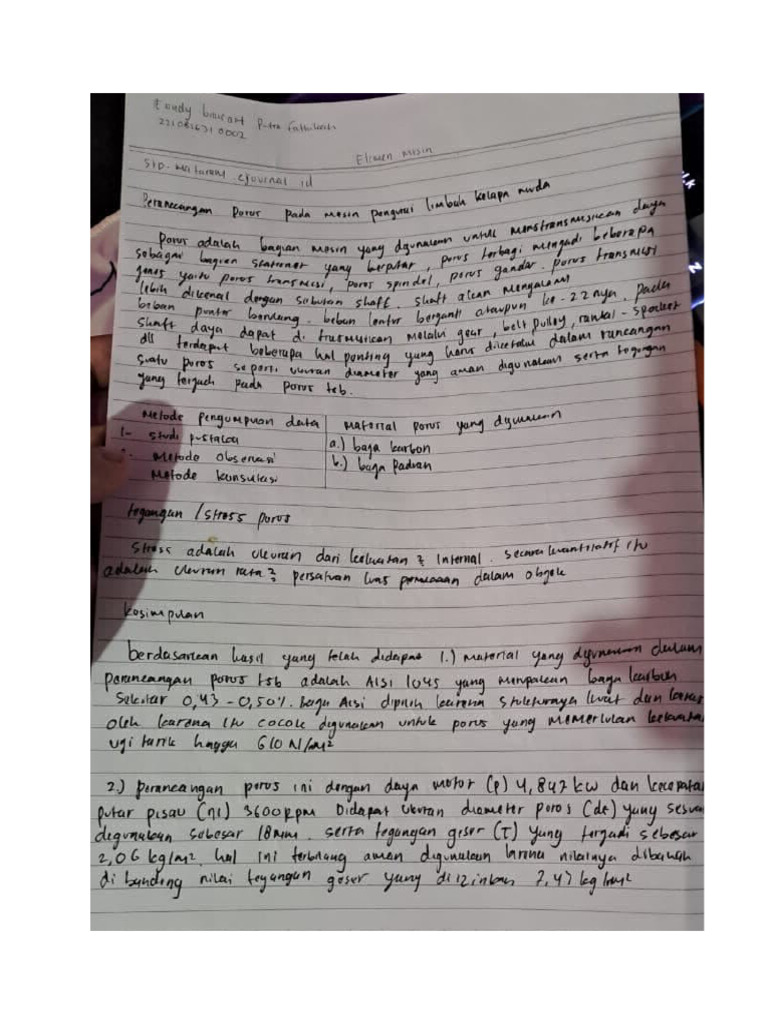 Elemen mesin
Stp. Mataram. ejournal id
Perancangan Poros pada mesin pengurai limbah kelapa muda
Poros adalah bagian mesin yang digunakan untuk menstransmisikan daya
sebagai bagian stationer yang berputar, poros terbagi menjadi beberapa
jenis yaitu poros transmisi, poros spindel, poros gandar. poros transmisi
lebih dikenal dengan sebutan shaft. shaft akan mengalami
beban puntir berulang, beban lentur berganti ataupun ke-22nya. pada
shaft daya dapat di trasmisikan melalui gear, belt pulley, rantai-sprocket
dll terdapat beberapa hal penting yang harus diketahui dalam rancangan
suatu poros seperti ukuran diameter yang aman digunakan serta tegangan
yang terjadi pada poros tsb.
Metode pengumpuan data | Material poros yang digunakan
1- Studi pustaka | a.) baja karbon
Metode observasi | b.) baja paduan
Metode konsultasi
tegangan / Stress poros
Stress adalah ukuran dari kekuatan 2 internal. secara kuantitatif itu
adalah ukuran rata2 persatuan luas permukaan dalam objek
Kesimpulan
berdasarkan hasil yang telah didapat 1.) material yang digunakan dalam
perancangan poros tsb adalah AISI 1045 yang merupakan baja karbon
Sekitar 0,43 - 0,50%. baja Aisi dipilih karena strukturnya kuat dan keras
oleh karena itu cocok digunakan untuk poros yang memerlukan kekuatan
uji tarik hingga 610 N/m²
2.) perancangan poros ini dengan daya motor (p) 4,847 kw dan kecepatan
putar pisau (n1) 3600 rpm Didapat ukuran diameter poros (ds) yang sesuai
digunakan sebesar 18mm. serta tegangan geser (τ) yang terjadi sebesar
2,06 kg/m². hal ini terbilang aman digunakan karena nilainya dibawah
di banding nilai tegangan geser yang diizinkan 7,47 kg/mm²